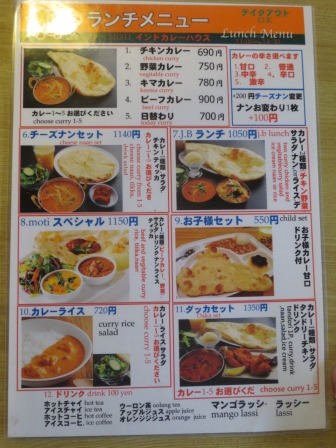 ランチメニュー
テイクアウト
OK
インドカレーハウス
Lunch Menu
1. チキンカレー 690円
chicken curry
2. 野菜カレー 750円
vegitable curry
3. キマカレー 780円
keema curry
4. ビーフカレー 900円
beef curry
5. 日替わり 700円
today curry
カレー1〜5お選びください
choose curry 1-5
カレーの辛さ選べます
1.甘口 2. 普通
3.中辛 4. 辛口
5. 激辛
+200円チーズナン変更
ナンお変わり1枚
+100円
6.チーズナンセット 1140円
cheese naan set
カレー1〜5お選びください
チキンティッカ
choose curry from
7.J.B ランチ 1050円
j.b lunch
カレー2種類(チキン、野菜)
サラダ、ナンorライス、アイス
8.moti スペシャル 1150円
beef and vegitable curry
rice, tikka, naan
9.お子様セット 550円
child set
お子様カレー甘口
ドリンク付
10.カレーライス 720円
curry rice
salad
カレーライスサラダ
カレー1〜5お選びください
choose curry 1-5
11.ダッカセット 1350円
Daka set
カレー1種類、サラダ
タンドリーチキン
ドリンク、ナン、アイス
tandori 1P, curry,drink
,naan,salad,ice cream
カレー1-5 お選びください
choose curry 1-5
12. ドリンク drink 100 yen
ホットチャイ hot tea
アイスチャイ ice tea
ホットコーヒ hot coffee
アイスコーヒ. ice coffee
ウーロン茶 oolang tea
アップルジュス apple juice
オレンジジジュス orange juice
マンゴラッシ-
mango lassi
ラッシー
lassi